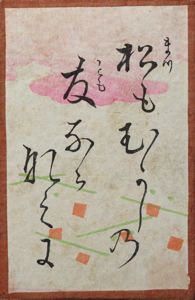 まつ
松もむかしの
とも
友ならなくに